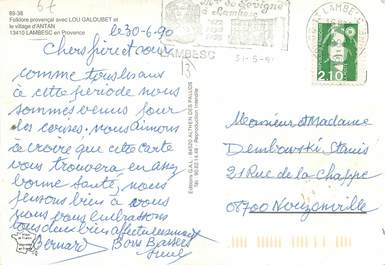 89-38
Folklore provençal avec LOU GALOUBET et
le village d'ANTAN
13410 LAMBESC en Provence
le 30-6-90
Chers frère et sœur
comme tous les ans
à cette période nous
sommes venus pour
les cerises, nous aimons
à croire que cette carte
vous trouvera en assez
bonne santé, nous
pensons bien à vous
nous vous embrassons
tous bien affectueusement
Bernard Bons Baisers
Editions G.A.L. 84520 ALTHEN DES PALUDS
Reproduction interdite
de Sévigné
à Lambesc
LAMBESC
13
31-5-9
2,10
Monsieur et Madame
Dembowski Stanis
21 Rue de la Chappe
08700 Nouzonville